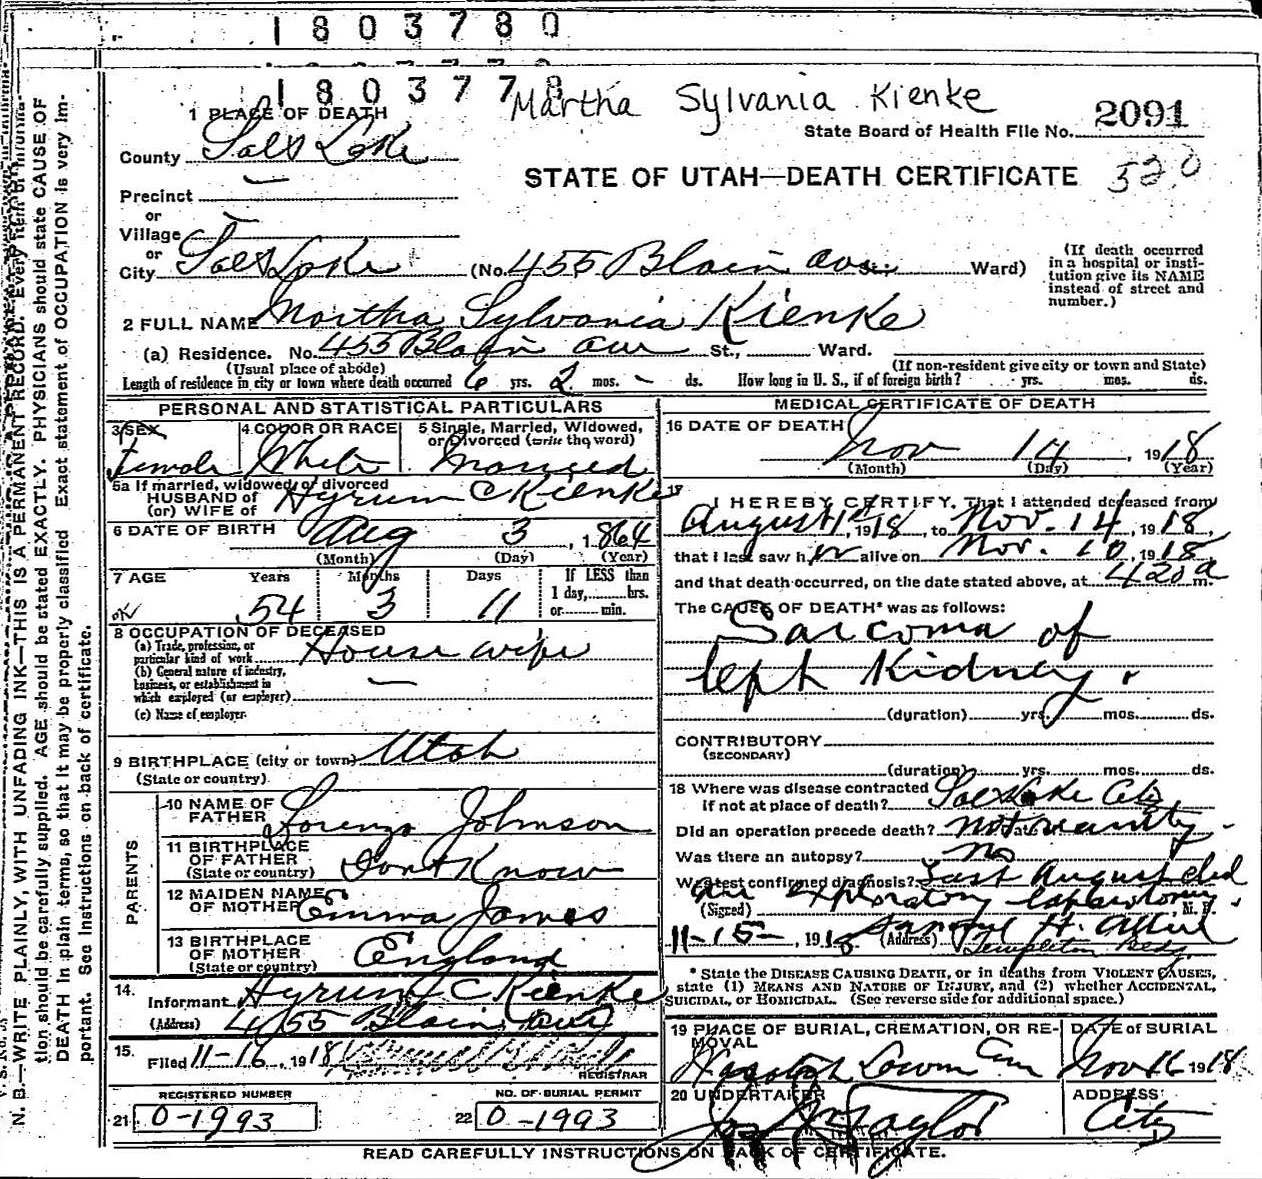 1803780
1803778
Martha Sylvania Kienke
1 PLACE OF DEATH
State Board of Health File No. 2091
County Salt Lake
STATE OF UTAH—DEATH CERTIFICATE 520
Precinct
or
Village
or
City Salt Lake (No. 455 Blain Ave Ward)
(If death occurred in a hospital or insti-
tution give its NAME
instead of street and
number.)
2 FULL NAME Martha Sylvania Kienke
(a) Residence. No. 455 Blain ave St., Ward.
(Usual place of abode) (If non-resident give city or town and State)
Length of residence in city or town where death occurred 6 yrs. 2 mos. - ds. How long in U. S., if of foreign birth? yrs. mos. ds.
PERSONAL AND STATISTICAL PARTICULARS
3 SEX Female
4 COLOR OR RACE White
5 Single, Married, Widowed,
or Divorced (write the word) Married
5a If married, widowed, or divorced
HUSBAND of
(or) WIFE of Hyrum C Kienke
6 DATE OF BIRTH Aug 3, 1864
(Month) (Day) (Year)
7 AGE Years Months Days If LESS than
1 day, hrs.
or min.
OK 54 3 11
8 OCCUPATION OF DECEASED
(a) Trade, profession, or
particular kind of work House wife
(b) General nature of industry,
business, or establishment in
which employed (or employer)
(c) Name of employer
9 BIRTHPLACE (city or town) Utah
(State or country)
PARENTS
10 NAME OF
FATHER Lorenzo Johnson
11 BIRTHPLACE
OF FATHER
(State or country) Dont Know
12 MAIDEN NAME
OF MOTHER Emma James
13 BIRTHPLACE
OF MOTHER
(State or country) England
14.
Informant Hyrum C Kienke
(Address) 455 Blain ave
15.
Filed 11-16, 1918
REGISTRAR
REGISTERED NUMBER
21 0-1993
NO. OF BURIAL PERMIT
22 0-1993
MEDICAL CERTIFICATE OF DEATH
16 DATE OF DEATH
Nov 14, 1918
(Month) (Day) (Year)
17
I HEREBY CERTIFY, That I attended deceased from
August 1st, 1918, to Nov. 14, 1918,
that I last saw her alive on Nov. 10, 1918,
and that death occurred, on the date stated above, at 420 a m.
The CAUSE OF DEATH* was as follows:
Sarcoma of
left Kidney.
(duration) yrs. mos. ds.
CONTRIBUTORY
(SECONDARY)
(duration) yrs. mos. ds.
18 Where was disease contracted
if not at place of death? Salt Lake City
Did an operation precede death? not recently.
Was there an autopsy? No
What test confirmed diagnosis? Last August did
an exploratory laparotomy.
(Signed) M. D.
11-15-, 1918 (Address) Templeton Bldg.
* State the DISEASE CAUSING DEATH, or in deaths from VIOLENT CAUSES,
state (1) MEANS AND NATURE OF INJURY, and (2) whether ACCIDENTAL,
SUICIDAL, or HOMICIDAL. (See reverse side for additional space.)
19 PLACE OF BURIAL, CREMATION, OR RE-
MOVAL
Wasatch Lawn Cem
DATE of BURIAL
Nov 16 1918
20 UNDERTAKER
Jos Wm Taylor
ADDRESS
City
READ CAREFULLY INSTRUCTIONS ON BACK OF CERTIFICATE.
N. B.—WRITE PLAINLY, WITH UNFADING INK—THIS IS A PERMANENT RECORD. Every item of informa-
tion should be carefully supplied. AGE should be stated EXACTLY. PHYSICIANS should state CAUSE OF
DEATH in plain terms, so that it may be properly classified. Exact statement of OCCUPATION is very im-
portant. See instructions on back of certificate.